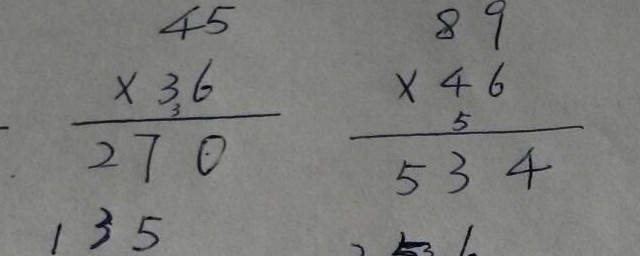 45
× 36
3
270
135
89
× 46
5
534